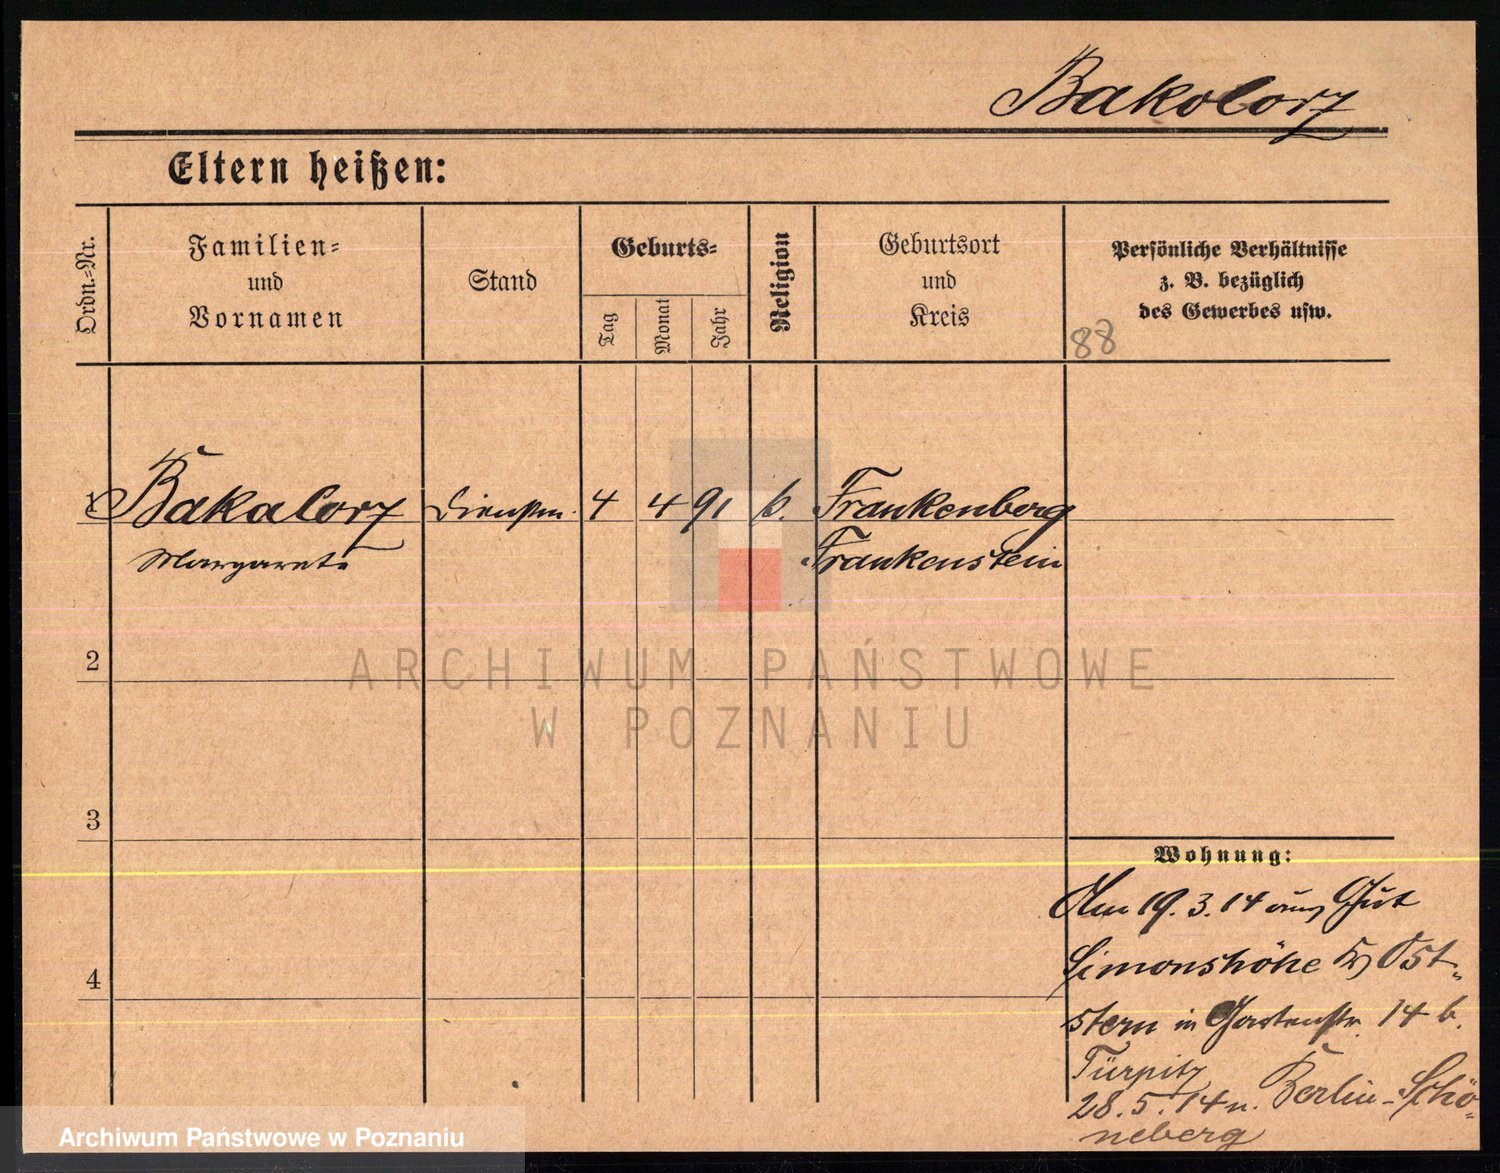 Bakolorz
Eltern heißen:
Ordn.-Nr.
Familien-
und
Vornamen
Stand
Geburts-
Tag
Monat
Jahr
Religion
Geburtsort
und
Kreis
Persönliche Verhältnisse
z. B. bezüglich
des Gewerbes usw.
88
1 Bakalorz Dienstm. 4 4 91 k. Frankenberg
Margarete Frankenstein
2
3
4
Wohnung:
Am 19. 3. 14 aus Gut
Simonshöhe Ost-
stern in Gartenstr. 14 b.
Türpitz
28. 5. 14 n. Berlin-Schö-
neberg
ARCHIWUM PAŃSTWOWE
W POZNANIU
Archiwum Państwowe w Poznaniu